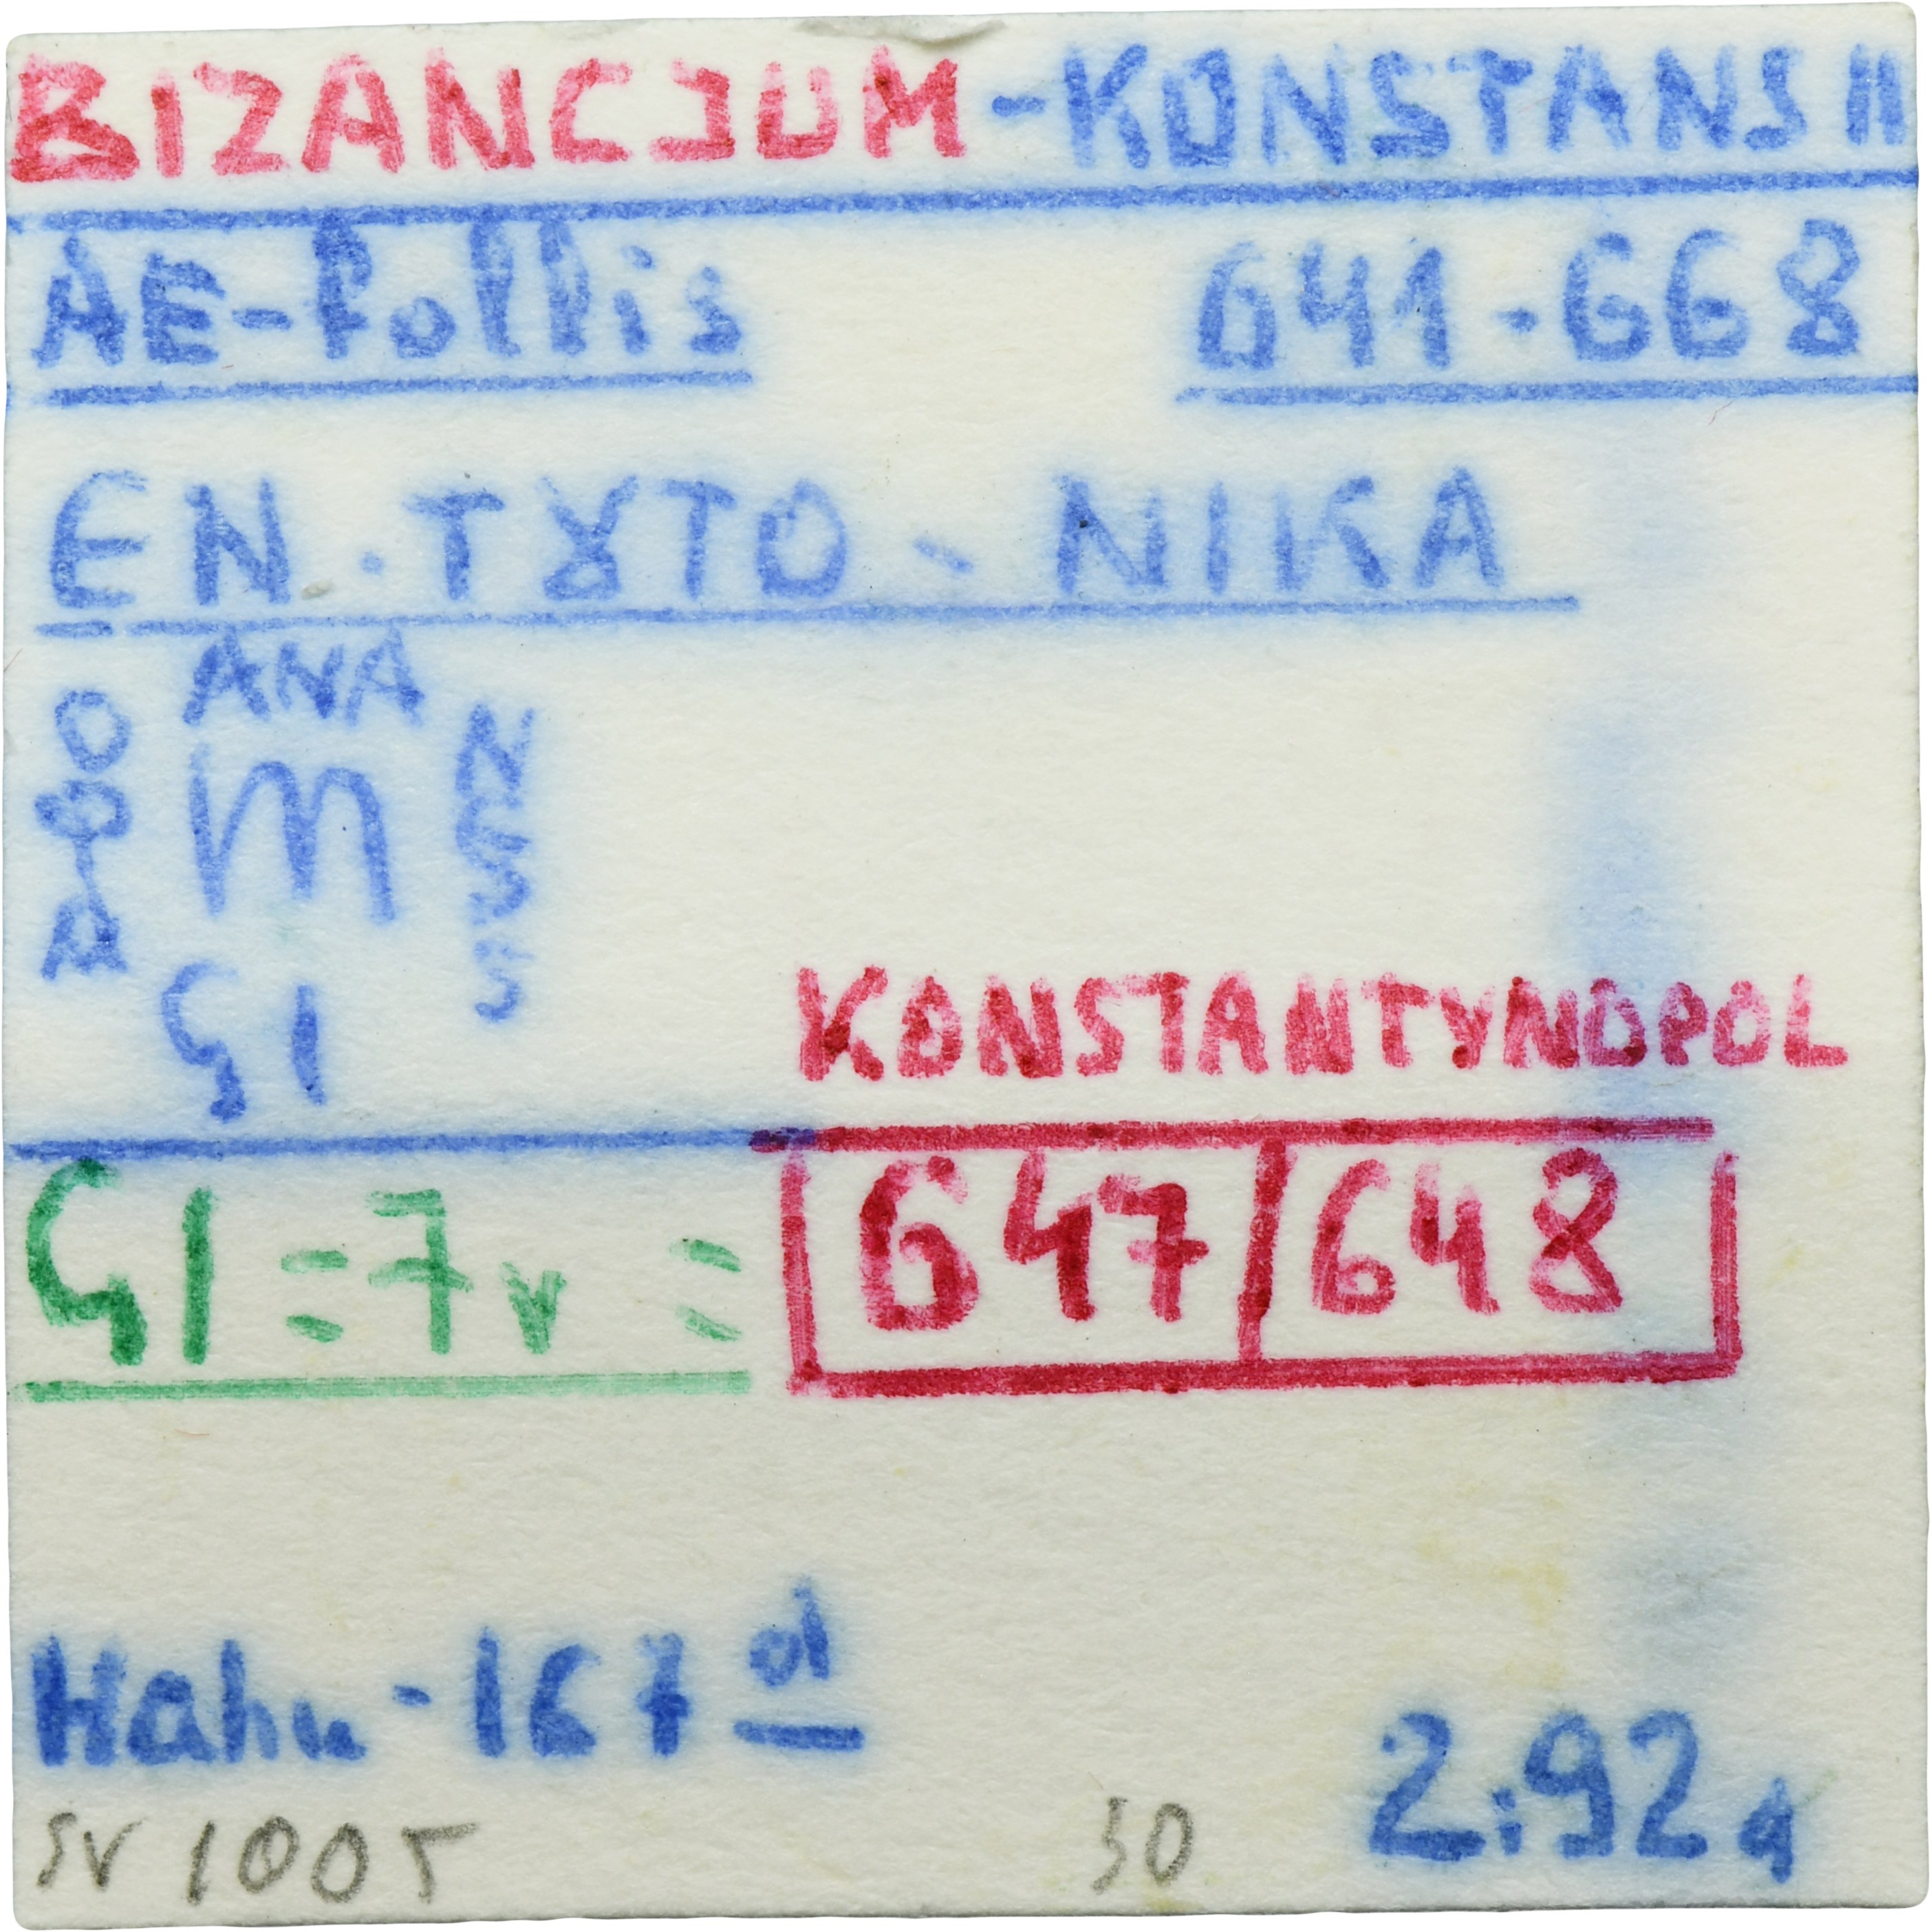 BIZANCJUM - KONSTANS II
AE-follis 641-668
EN·TȢTO - NIKA
ANA
O
Φ
A
m
N
E
O
S
ϚI
KONSTANTYNOPOL
ϚI = 7v = 647/648
Hahn - 167 d
2,92g
SV 1005
30